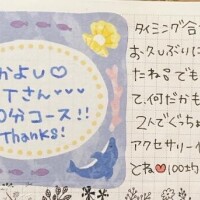 かよし♡
Tさん
0分コース!!
Thanks!
タイミング合
お久しぶりに
たね。でも
て、何だかも
2人でぐちゃ
アクセサリー
とね♥(100均